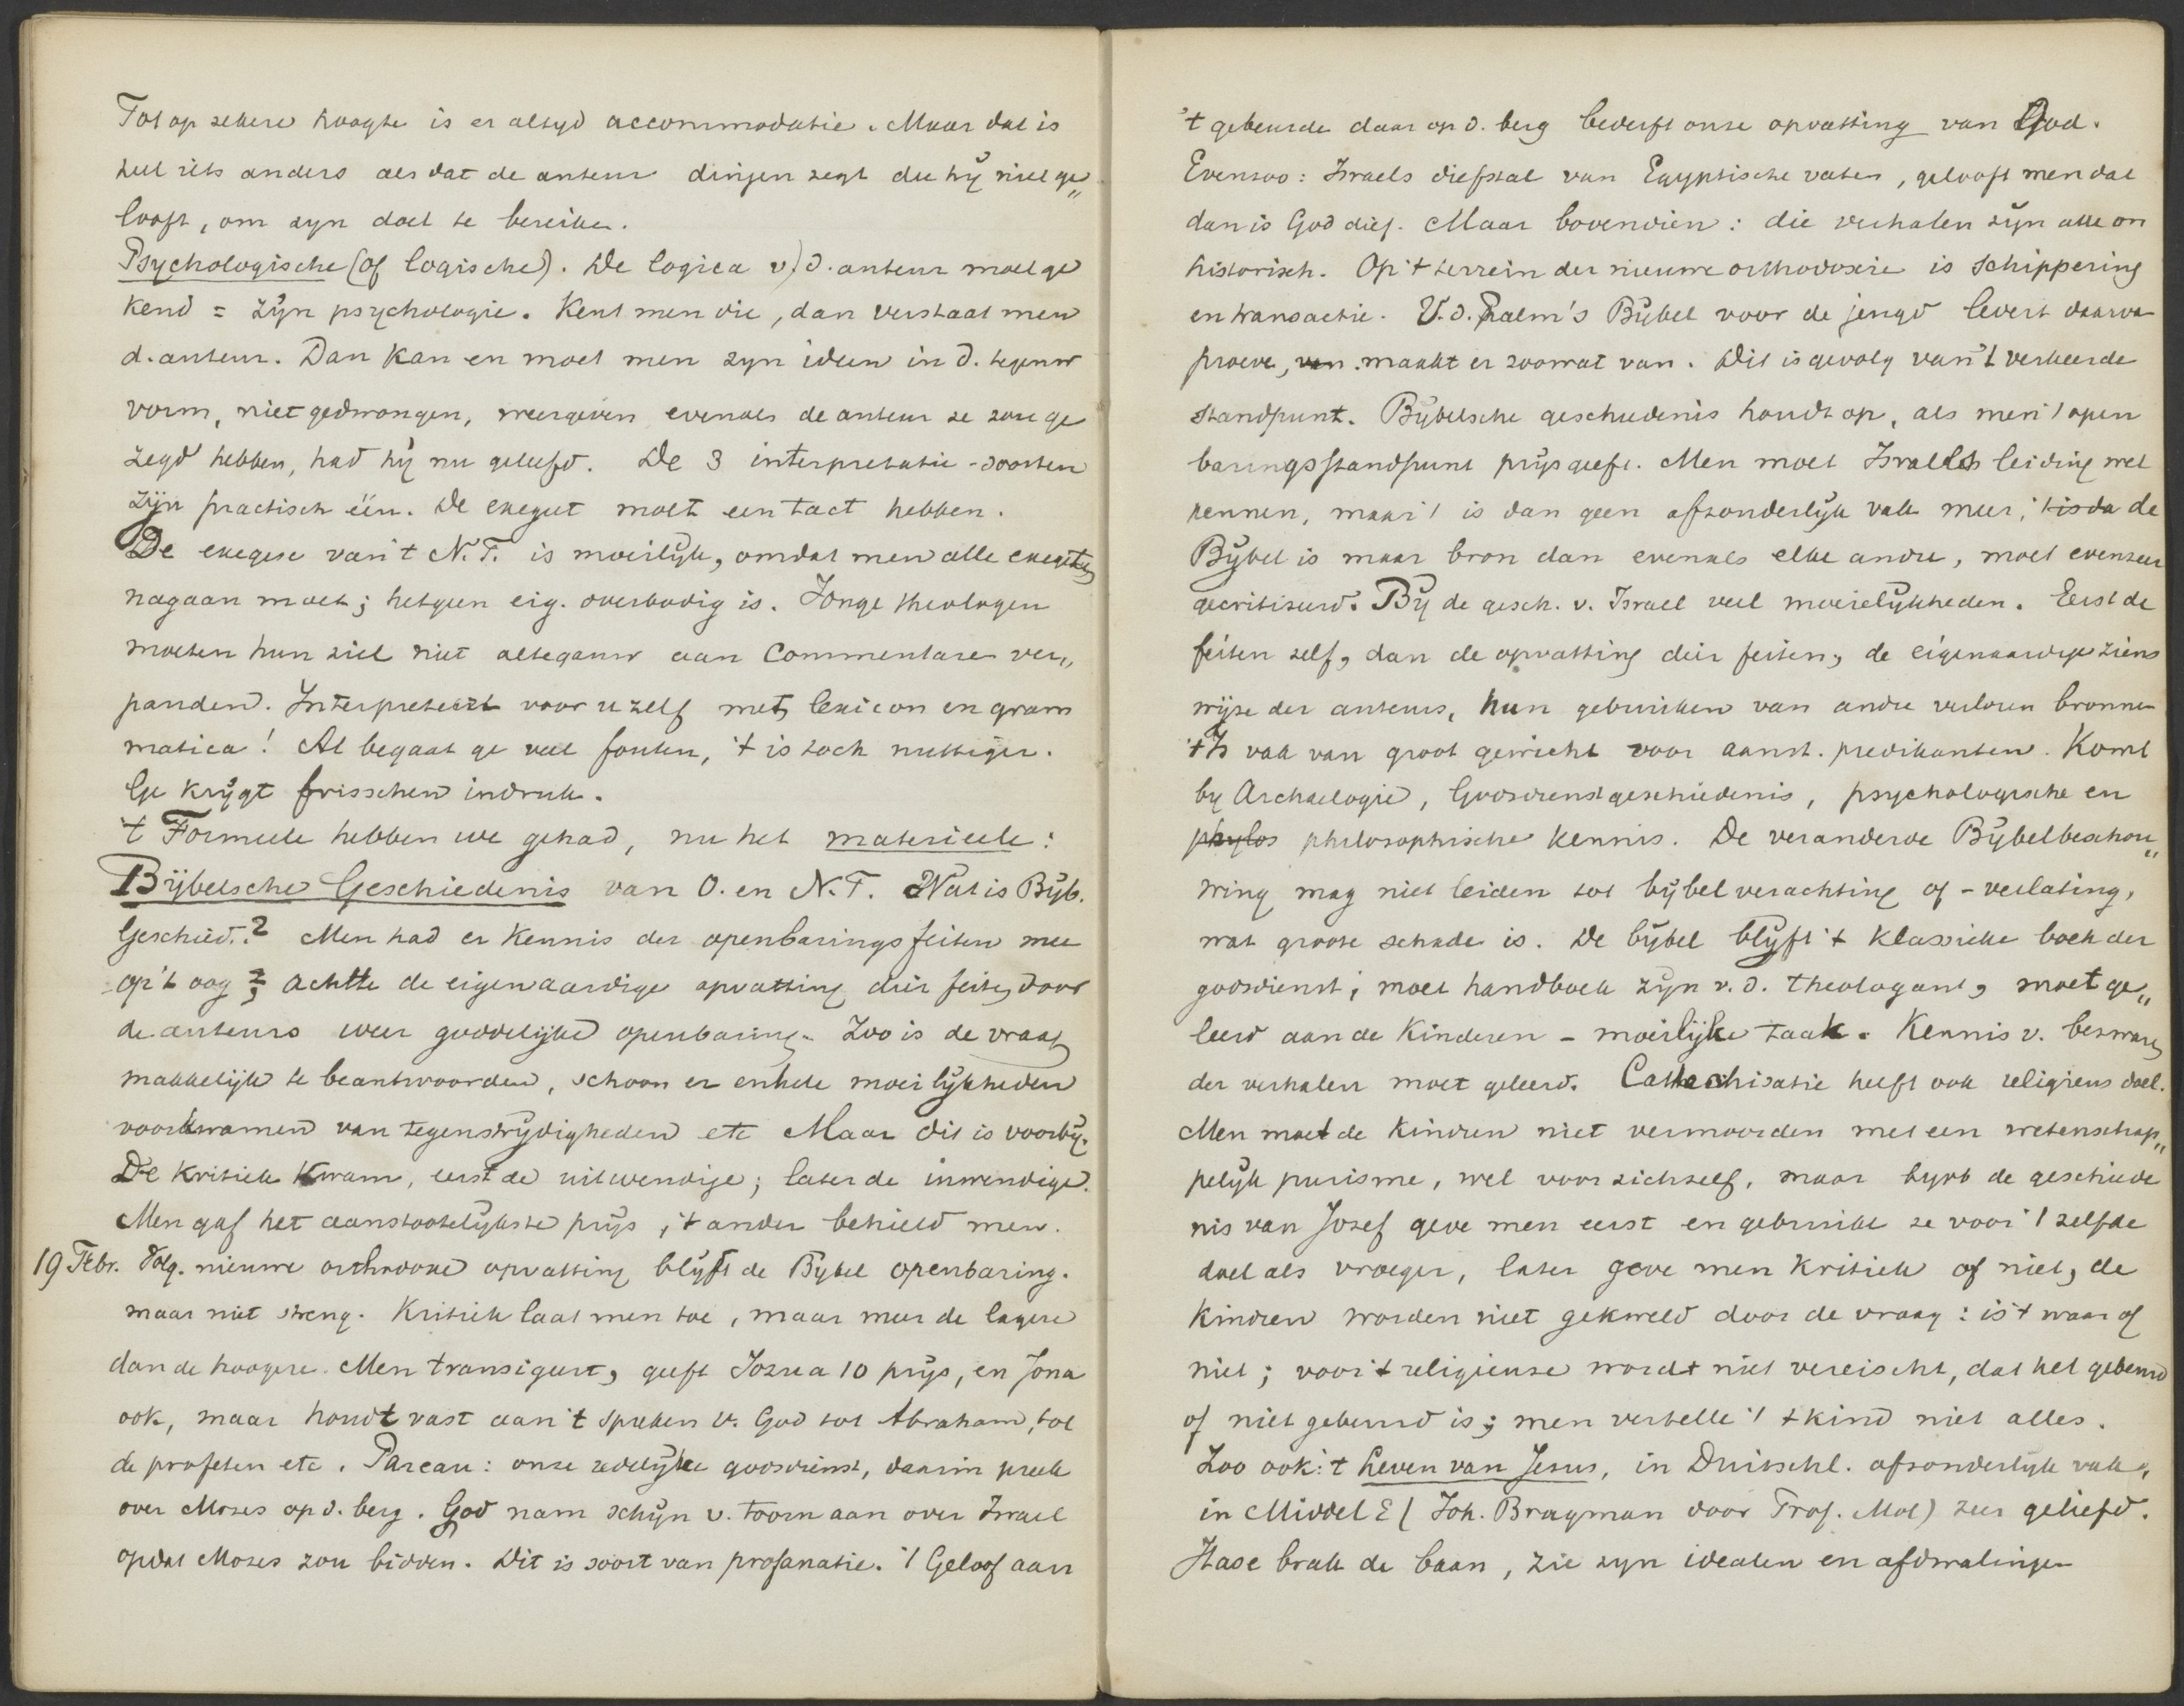 Tot op zekere hoogte is er altyd accommodatie. Maar dat is
heel iets anders als dat de auteur dingen zegt die hÿ niet ge„
looft, om zyn doel te bereiken.
Psychologische (of logische). De logica v/d. auteur moet ge
kend = zÿn psychologie. Kent men die, dan verstaat men
d. auteur. Dan kan en moet men zyn ideen in d. tegenw
vorm, niet gedwongen, weergeven evenals de auteur ze zou ge
zegd hebben, had hÿ nu geleefd. De 3 interpretatie-soorten
zÿn practisch één. De exegeet moet een tact hebben.
De exegese van 't N.T. is moeilÿk, omdat men alle exegeten
nagaan moet; hetgeen eig. overbodig is. Jonge theologen
moeten hun ziel niet altegauw aan Commentare ver„
panden. Interpreteert voor u zelf met lexicon en gram
matica! Al begaat ge veel fouten, 't is toch nuttiger.
Ge krÿgt frisschen indruk.
't Formeele hebben we gehad, nu het materieele:
Bÿbelsche Geschiedenis van O. en N.T. Wat is Bÿb.
Geschied.? Men had er kennis der openbaringsfeiten mee
op 't oog; achtte de eigenaardige opvatting dier feiten door
de auteurs weer goddelijke openbaring. Zoo is de vraag
makkelijk te beantwoorden, schoon er enkele moeilÿkheden
voorkwamen van tegenstrÿdigheden etc Maar dit is voorbÿ.
De kritiek kwam, eerst de uitwendige; later de inwendige.
Men gaf het aanstootelÿkste prÿs, 't ander behield men.
19 Febr. Volg. nieuwe orthodoxe opvatting blÿft de Bÿbel openbaring.
maar niet streng. Kritiek laat men toe, maar meer de lagere
dan de hoogere. Men transigeert, geeft Jozua 10 prÿs, en Jona
ook, maar houdt vast aan 't spreken v. God tot Abraham, tot
de profeten etc. Pareau: onze zedelÿke godsdienst, daarin preek
over Mozes op d. berg. God nam schÿn v. toorn aan over Israel
opdat Mozes zou bidden. Dit is soort van profanatie. 't Geloof aan
't gebeurde daar op d. berg bederft onze opvatting van God.
Evenzoo: Israels diefstal van Egyptische vaten, gelooft men dat
dan is God dief. Maar bovendien: die verhalen zÿn alle on
historisch. Op 't terrein der nieuwe orthodoxie is schippering
en transactie. V.d. Palm's Bÿbel voor de jeugd levert daarva
proeve, van maakt er zoowat van. Dit is gevolg van 't verkeerde
standpunt. Bÿbelsche geschiedenis houdt op, als men 't open
baringsstandpunt prÿs geeft. Men moet Israels leiding wel
kennen, maar 't is dan geen afzonderlÿk vak meer, 't is da de
Bÿbel is maar bron dan evenals elke andre, moet evenzeer
gecritiseerd. Bÿ de gesch. v. Israel veel moeielÿkheden. Eerst de
feiten zelf, dan de opvatting dier feiten, de eigenaardige ziens
wÿze der auteurs, hun gebruiken van andre verloren bronnen
't Is vak van groot gewicht voor aanst. predikanten. Komt
by Archaelogie, Godsdienstgeschiedenis, psychologische en
phylos philosophische kennis. De veranderde Bÿbelbeschou„
wing mag niet leiden tot bÿbelverachting of -verlating,
wat groote schade is. De bÿbel blÿft 't klassieke boek der
godsdienst; moet handboek zÿn v.d. theologant, moet ge„
leerd aan de kinderen - moeilÿke taak. Kennis v. bezwaren
der verhalen moet geleerd. Catechisatie heeft ook religieus doel.
Men moet de kindren niet vermoorden met een wetenschap„
pelÿk purisme, wel voor zichzelf, maar byvb de geschiede
nis van Jozef geve men eerst en gebruike ze voor 't zelfde
doel als vroeger, later geve men kritiek of niet, de
kindren worden niet gekweld door de vraag: is 't waar of
niet; voor 't religieuse wordt niet vereischt, dat het gebeurd
of niet gebeurd is; men vertelle 't kind niet alles.
Zoo ook: 't Leven van Jesus, in Duitschl. afzonderlÿk vak,
in Middel E (Joh. Brugman door Prof. Mol) zeer geliefd.
Hase brak de baan, zie zyn idealen en afdwalingen